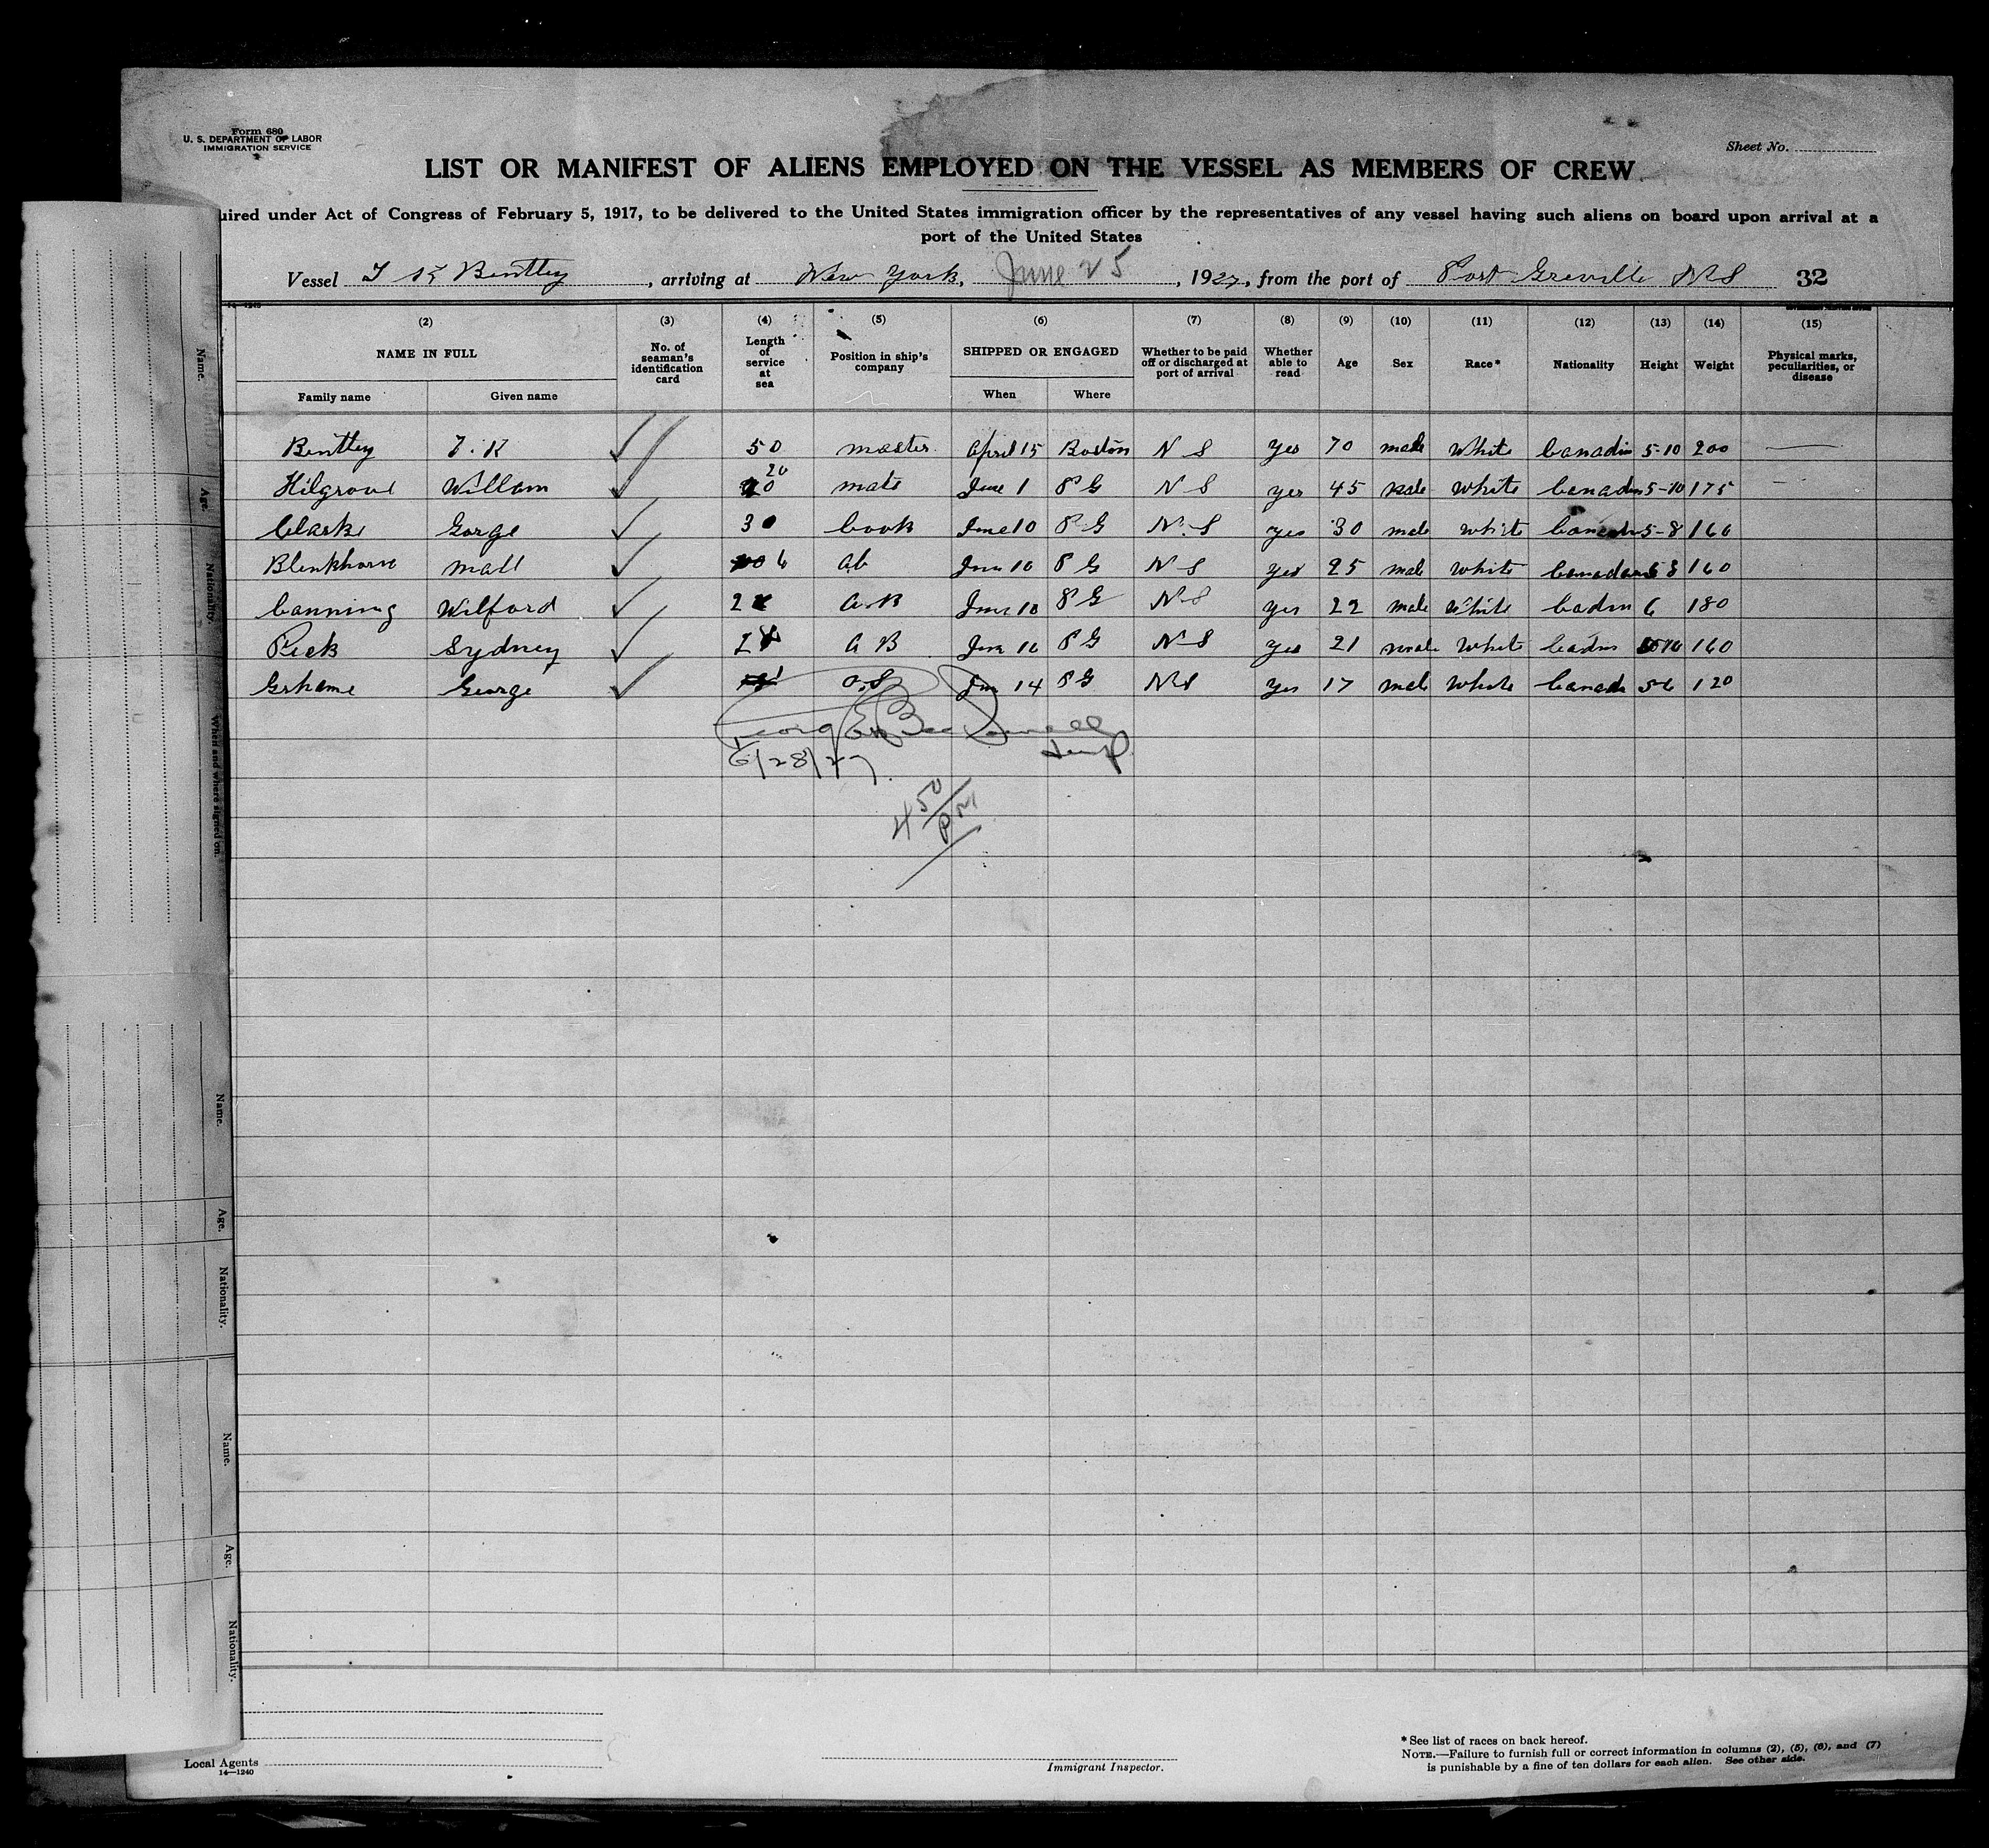 Form 680
U. S. DEPARTMENT OF LABOR
IMMIGRATION SERVICE
Sheet No.
LIST OR MANIFEST OF ALIENS EMPLOYED ON THE VESSEL AS MEMBERS OF CREW
uired under Act of Congress of February 5, 1917, to be delivered to the United States immigration officer by the representatives of any vessel having such aliens on board upon arrival at a
port of the United States
Vessel T K Bentley, arriving at New York, June 25, 1927, from the port of Port Greville N S 32
(2) (3) (4) (5) (6) (7) (8) (9) (10) (11) (12) (13) (14) (15)
NAME IN FULL No. of seaman's identification card Length of service at sea Position in ship's company SHIPPED OR ENGAGED Whether to be paid off or discharged at port of arrival Whether able to read Age Sex Race* Nationality Height Weight Physical marks, peculiarities, or disease
Family name Given name When Where
Bentley T. K 50 master April 15 Boston N S Yes 70 male White Canadin 5-10 200
Hilgrove Willam 20 mate June 1 P G N S yes 45 male White Canadin 5-10 175
Clarke Gorge 3 Cook June 10 P G N.S yes 30 male white 5-8 160
Blenkhorn 6 ab June 10 P G N S yes 25 male White 5 8 160
Canning Wilford 2 A.B June 10 P G N S yes 22 male White Cadin 6 180
Peck Sydney 2 A B June 10 P G N S yes 21 male White Cadin 160
Grhame George 1 O.S June 14 P G N S yes 17 male White Canada 5 6 120
6/28/27
4 50 PM
Name. Age. Nationality. When and where signed on.
Name. Age. Nationality.
Name. Age. Nationality.
Local Agents
14—1240
Immigrant Inspector.
* See list of races on back hereof.
NOTE.—Failure to furnish full or correct information in columns (2), (5), (6), and (7)
is punishable by a fine of ten dollars for each alien. See other side.